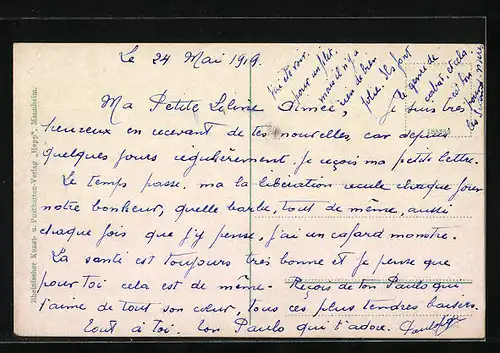 Le 24 Mai 1919.
Ma Petite Aimée, Je suis très
heureux en recevant de tes nouvelles car depuis
quelques jours régulièrement je reçois ma petite lettre.
Le temps passe. ma la libération recule chaque jour
notre bonheur, quelle barbe, tout de même, aussi
chaque fois que j'y pense, j'ai un cafard monstre.
La santé est toujours très bonne et je pense que
pour toi cela est de même. Reçois de ton Paulo qui
t'aime de tout son cœur, tous ces plus tendres baisers.
Tout à toi. Ton Paulo qui t'adore.
pour un filet.
mais il n'y a
rien de bien
jolie. Ils font
le genre de
et cela
est bon
pour
Rheinischer Kunst- u. Postkarten-Verlag „Hepp", Mannheim.